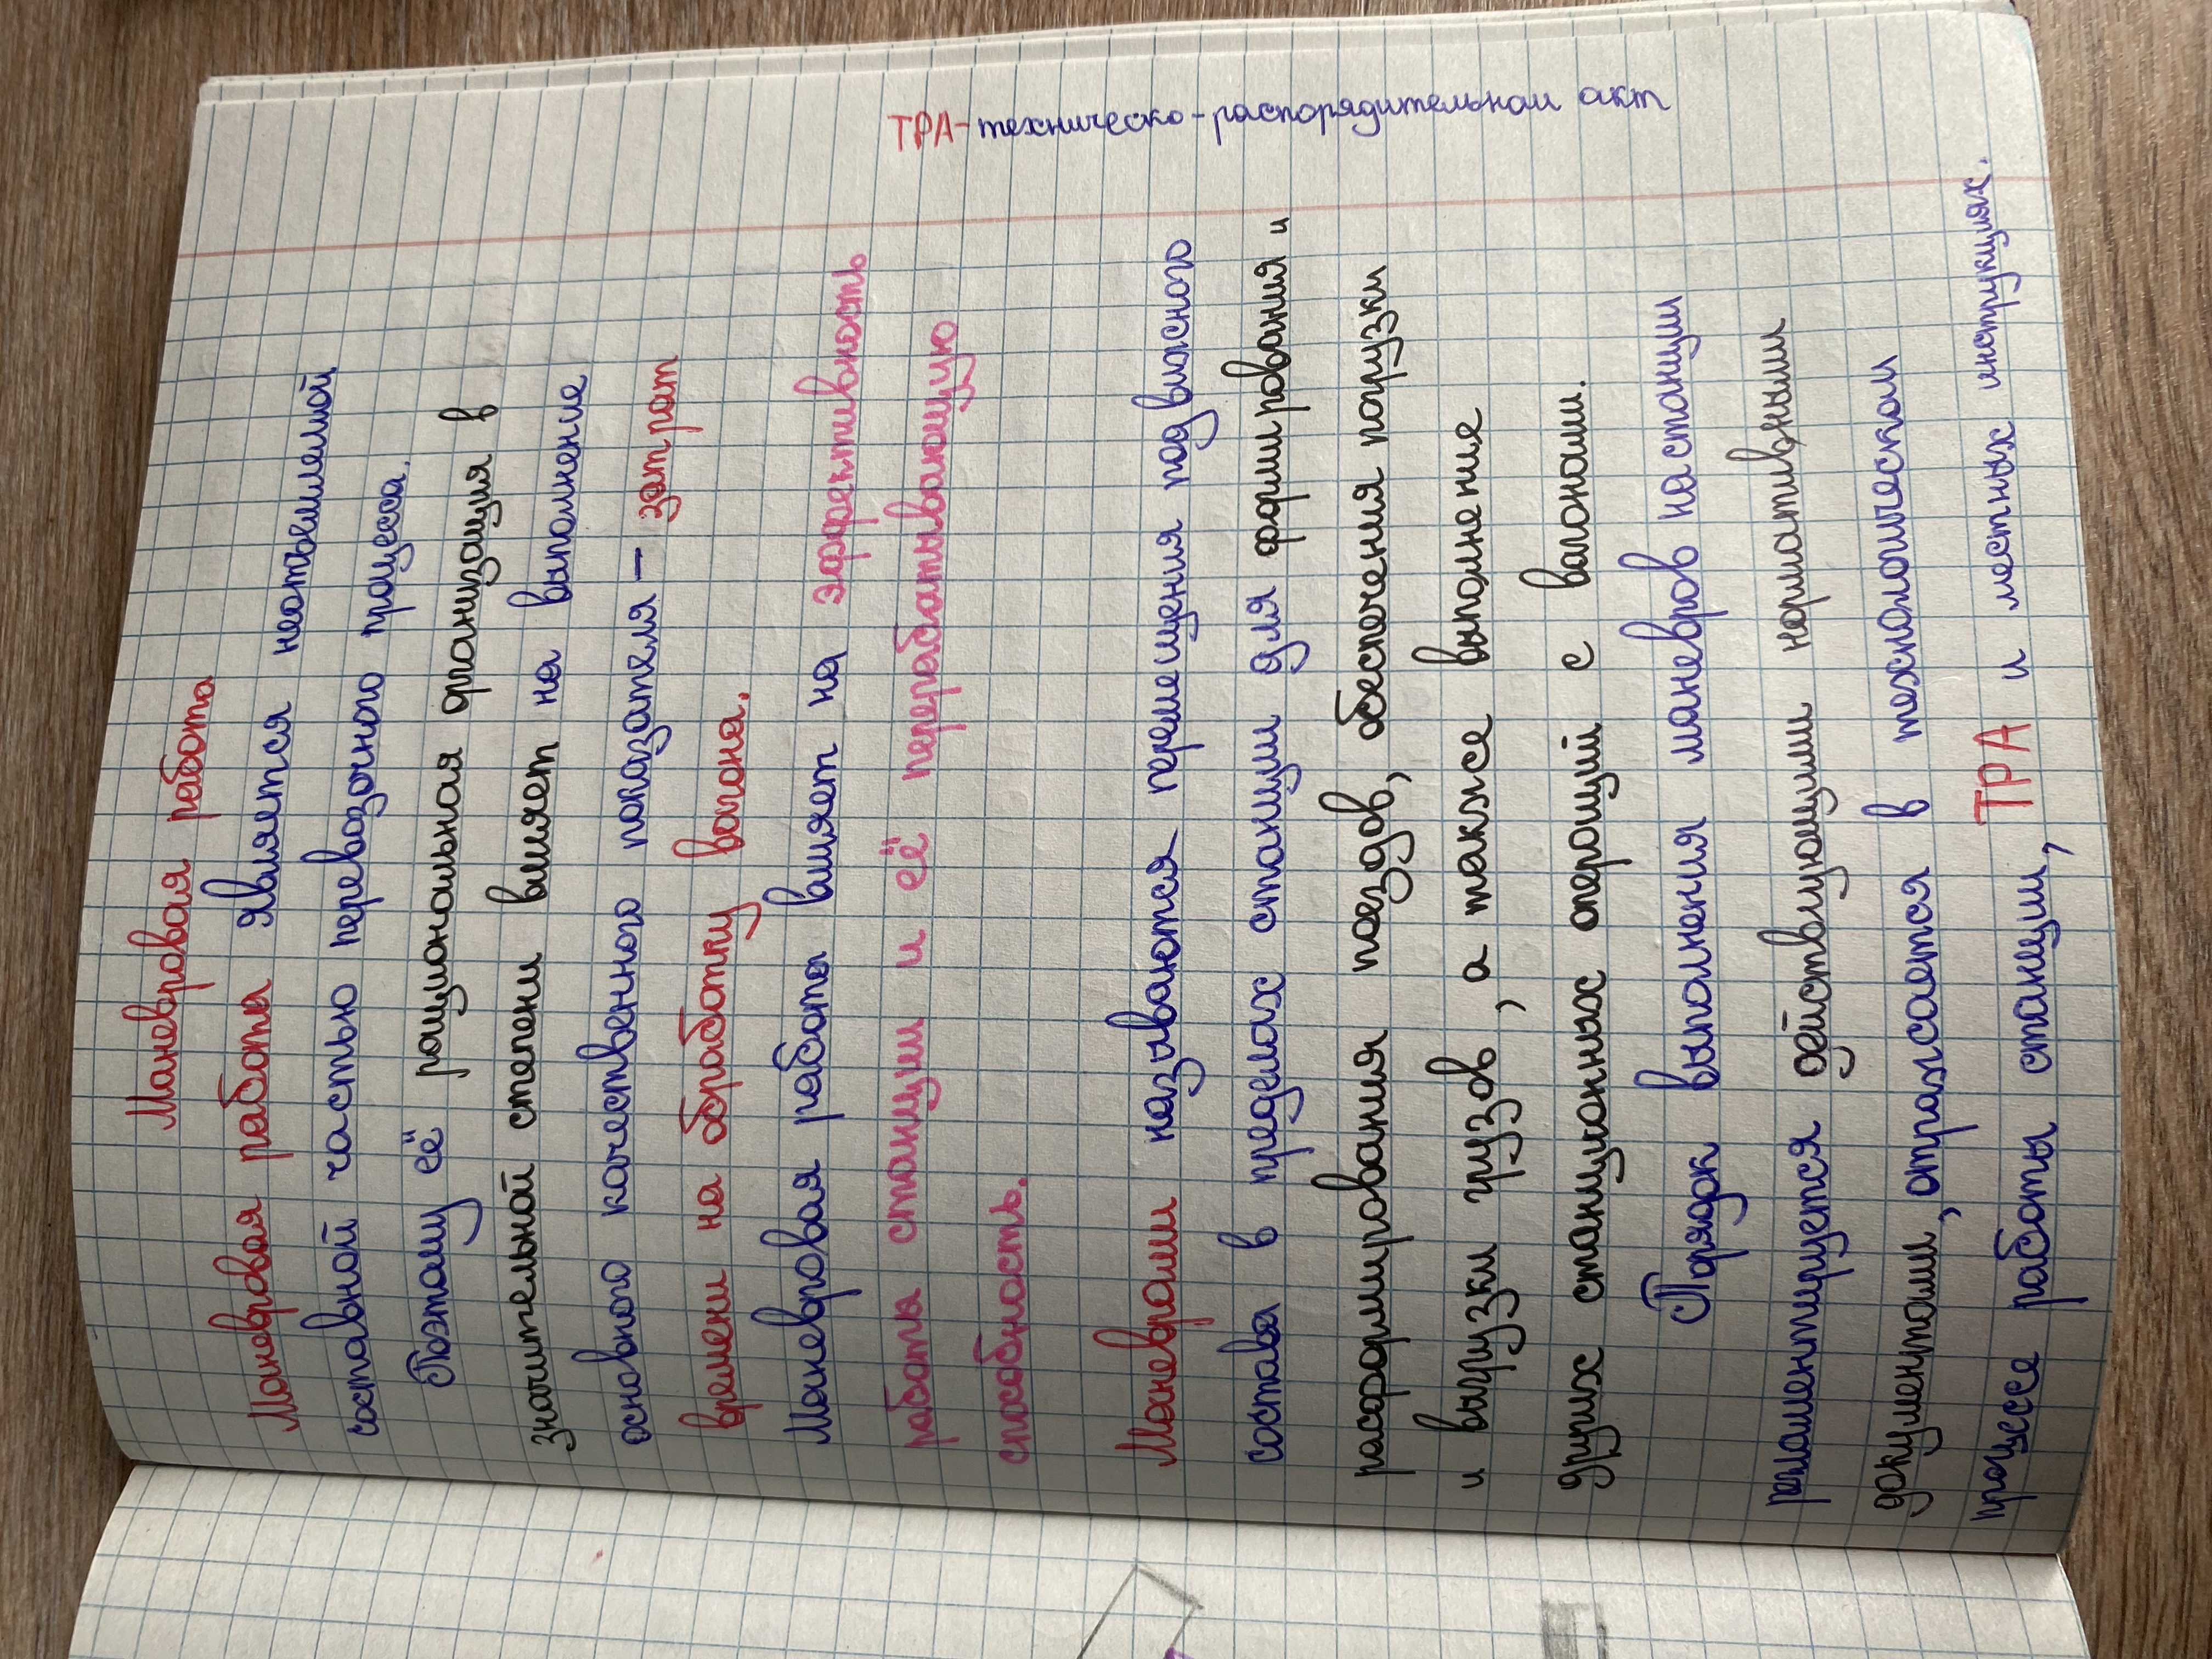 Маневровая работа
Маневровая работа является неотъемлемой
составной частью перевозочного процесса.
Поэтому её рациональная организация в
значительной степени влияет на выполнение
основного качественного показателя - затрат
времени на обработку вагона.
Маневровая работа влияет на эффективность
работы станции и её перерабатывающую
способность.
Маневрами называются перемещения подвижного
состава в пределах станции для формирования и
расформирования поездов, обеспечения погрузки
и выгрузки грузов, а также выполнение
других станционных операций с вагонами.
Порядок выполнения маневров на станции
регламентируется действующими нормативными
документами, отражается в технологическом
процессе работы станции, ТРА и местных инструкциях.
ТРА-техническо-распорядительном акт